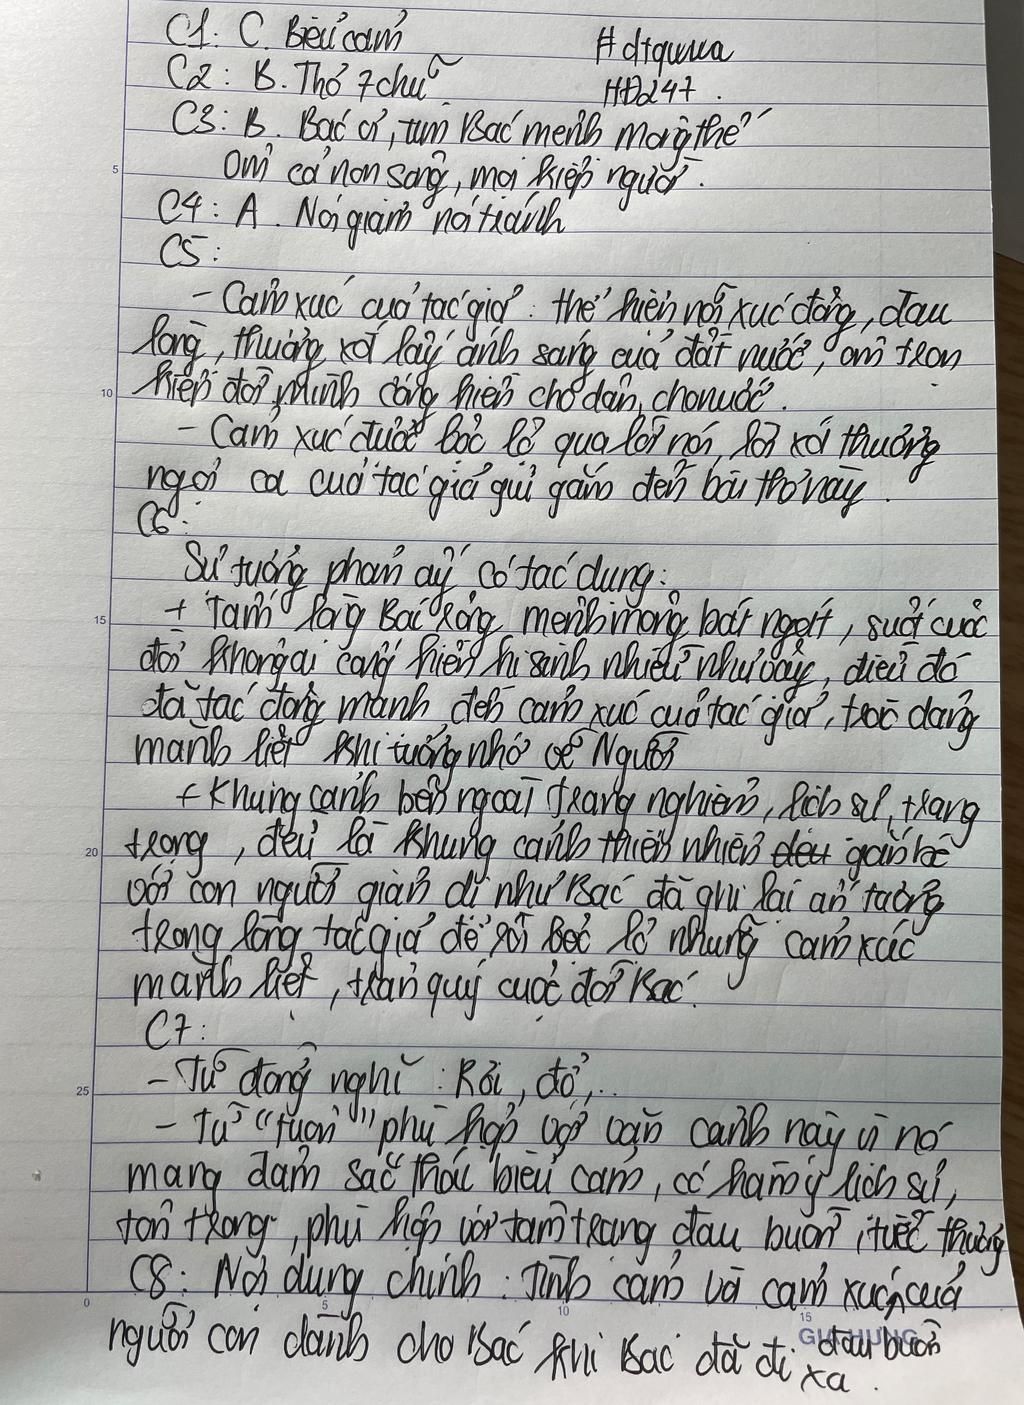 C1: C. Biểu cảm
#dtquwa
C2: B. Thơ 7 chữ
HĐ247.
C3: B. Bác ơi, tim Bác mênh mông thế
Ôm cả non sông, mọi kiếp người.
5
C4: A. Nói giảm nói tránh
C5:
- Cảm xúc của tác giả: thể hiện nỗi xúc động, đau
lòng, thương xót lấy ánh sáng của đất nước, ôm trọn
10
kiếp đời mình cống hiến cho dân, cho nước.
- Cảm xúc được bộc lộ qua lời nói, lời xót thương
ngợi ca của tác giả gửi gắm đến bài thơ này.
C6:
Sự tương phản ấy có tác dụng:
15
+ Tấm lòng Bác rộng mênh mông bát ngát, suốt cuộc
đời không ai cống hiến hi sinh nhiều như vậy, điều đó
đã tác động mạnh đến cảm xúc của tác giả, trào dâng
mãnh liệt khi tưởng nhớ về Người
+ Khung cảnh bên ngoài trang nghiêm, lịch sự, trang
20
trọng, đều là khung cảnh thiên nhiên đều gắn bó
với con người giản dị như Bác đã ghi lại ấn tượng
trong lòng tác giả để rồi bộc lộ những cảm xúc
mãnh liệt, trân quý cuộc đời Bác.
C7:
25
- Từ đồng nghĩa: Rơi, đổ,..
- Từ "tuôn" phù hợp với văn cảnh này vì nó
mang đậm sắc thái biểu cảm, có hàm ý lịch sự,
tôn trọng, phù hợp với tâm trạng đau buồn, tiếc thương
C8: Nội dung chính: Tình cảm và cảm xúc của
0 5 10 15
GIA HƯNG
đau buồn
người con dành cho Bác khi Bác đã đi xa.